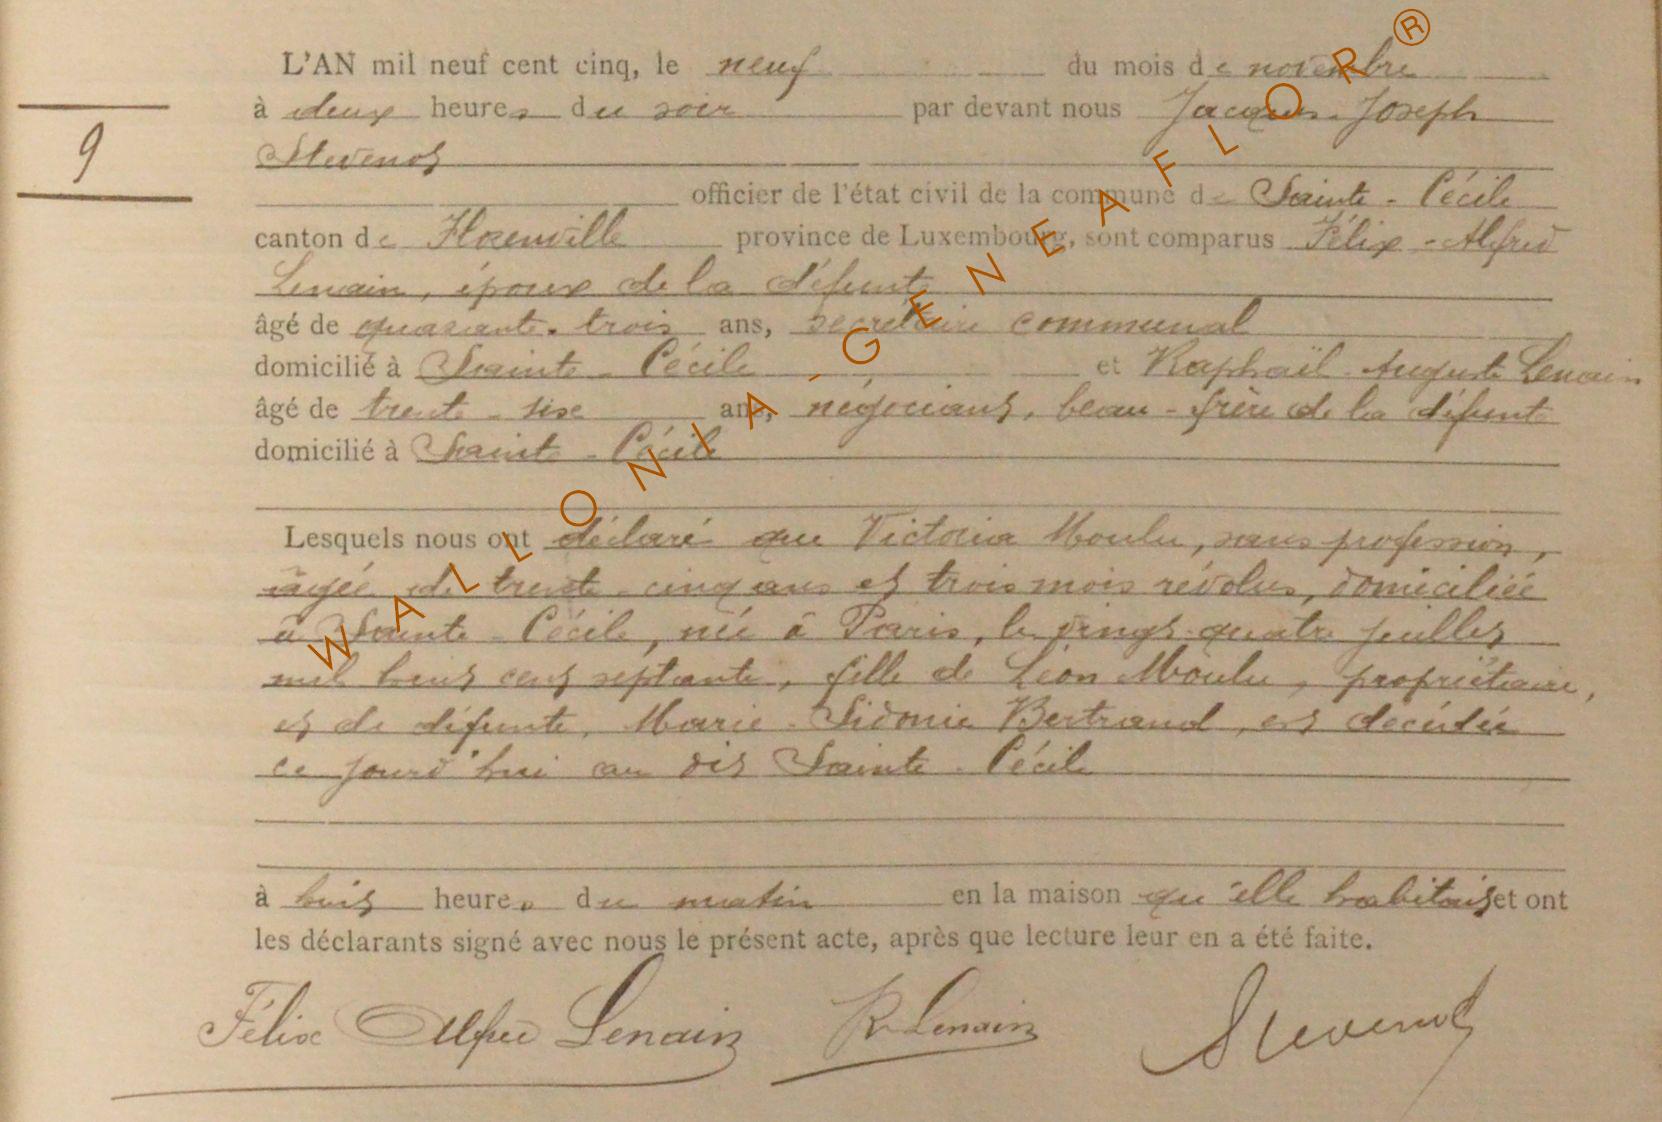 L'AN mil neuf cent cinq, le neuf du mois de novembre
à deux heures du soir par devant nous Jacques-Joseph
9
Stevenot
officier de l'état civil de la commune de Sainte-Cécile
canton de Florenville province de Luxembourg, sont comparus Félix-Alfred
Lenain, époux de la défunte
âgé de quarante-trois ans, secrétaire communal
domicilié à Sainte-Cécile et Raphaël-Auguste Lenain
âgé de trente-six ans, négociant, beau-frère de la défunte
domicilié à Sainte-Cécile
Lesquels nous ont déclaré que Victoria Moulu, sans profession,
âgée de trente-cinq ans et trois mois révolus, domiciliée
à Sainte-Cécile, née à Paris, le vingt-quatre juillet
mil huit cent septante, fille de Léon Moulu, propriétaire,
et de défunte, Marie-Sidonie Bertrand, est décédée
ce jourd'hui au dit Sainte-Cécile
à huit heures du matin en la maison qu'elle habitait et ont
les déclarants signé avec nous le présent acte, après que lecture leur en a été faite.
Félix Alfred Lenain R Lenain Stevenot
WALLONIA-GENEAFLOR®